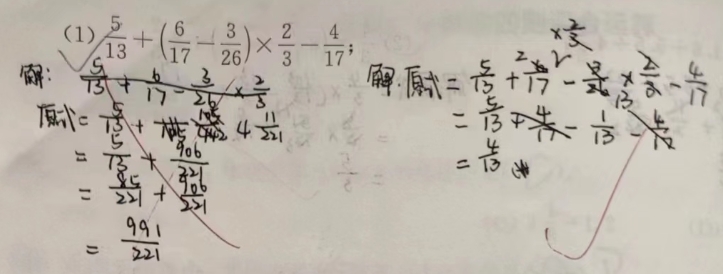 (1) 5/13 + (6/17 - 3/26) × 2/3 - 4/17;
× 2/3
解: 5/13 + 6/17 - 3/26 × 2/3
原式 = 5/13 +
= 5/13 + 906/221
= 85/221 + 906/221
= 991/221
解:原式 = 5/13 + 6/17 - 3/26 × 2/3 - 4/17
= 5/13 + 4/17 - 1/13 - 4/17
= 4/13